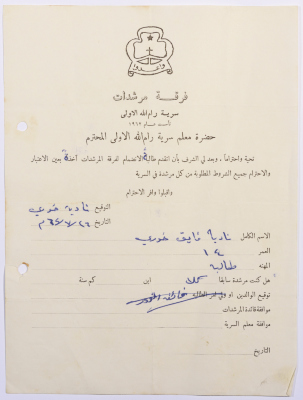 وأعدوا
فرقة مرشدات
سرية رام الله الاولى
تأسست عام ١٩١٢
حضرة معلم سرية رام الله الاولى المحترم
تحية واحتراما ، وبعد لي الشرف بأن اتقدم طالبة الانضمام لفرقة المرشدات آخذة بعين الاعتبار
والاحترام جميع الشروط المطلوبة من كل مرشدة في السرية
واقبلوا وفر الاحترام
التوقيع نادية خوري
التاريخ ٢٦/٧/٦٤ م
الاسم الكامل نادية فايق خوري
العمر ١٤
المهنه طالبة
هل كنت مرشدة سابقا كلا اين كم سنة
توقيع الوالدين او ولي امر الطالبة
موافقة قائدة المرشدات
موافقة معلم السرية
التاريخ